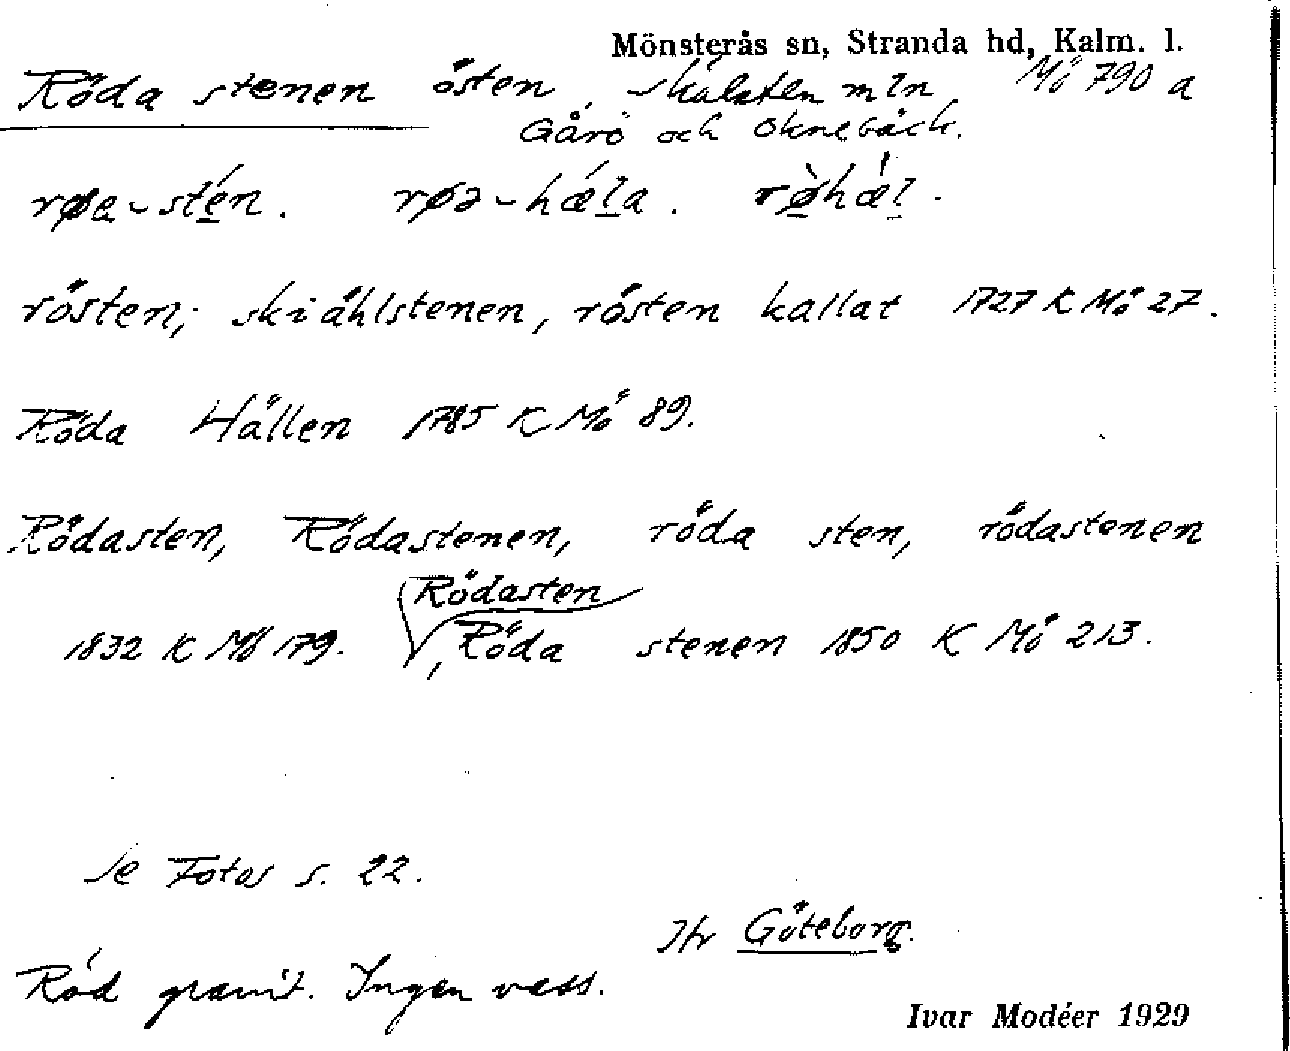 Mönsterås sn, Stranda hd, Kalm. l.
Röda stenen östen, skålsten mln Mö 790 a
Gårö och Oknebäck.
røa-stén. røə-hæla. rø̀hæl.
rösten; skiåhlstenen, rösten kallat 1727 K Mö 27.
Röda Hällen 1785 K Mö 89.
Rödasten, Rödastenen, röda sten, rödastenen
Rödasten
1832 K Mö 179. , Röda stenen 1850 K Mö 213.
Se Fotos s. 22.
Jfr Göteborg.
Röd granit. Ingen vass.
Ivar Modéer 1929